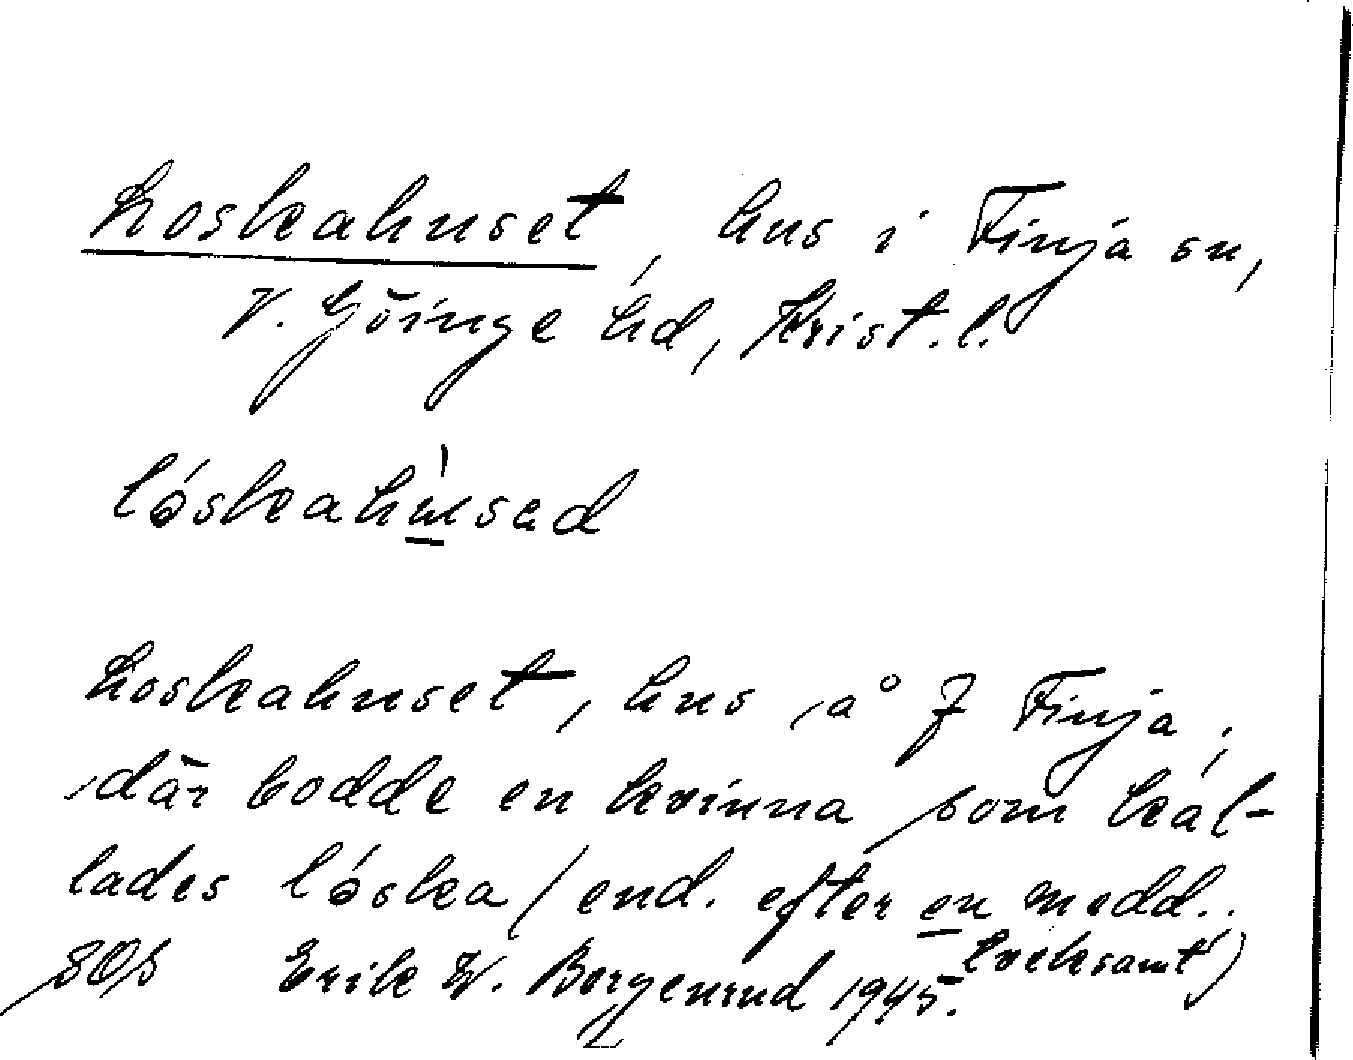 Loskahuset, hus i Finja sn,
V. Göinge hd, Krist. l.
lóskahùsad
Loskahuset, hus å 7 Finja;
där bodde en kvinna som kal-
lades lóska / end. efter en medd..
Erik W. Borgenrud 1945. tveksamt)